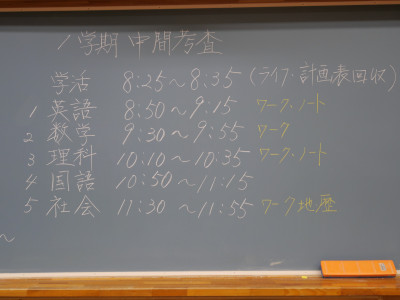 1学期 中間考査
学活 8:25〜8:35 (ライフ・計画表回収)
1 英語 8:50〜9:15 ワーク・ノート
2 数学 9:30〜9:55 ワーク
3 理科 10:10〜10:35 ワーク・ノート
4 国語 10:50〜11:15
5 社会 11:30〜11:55 ワーク地歴
〜